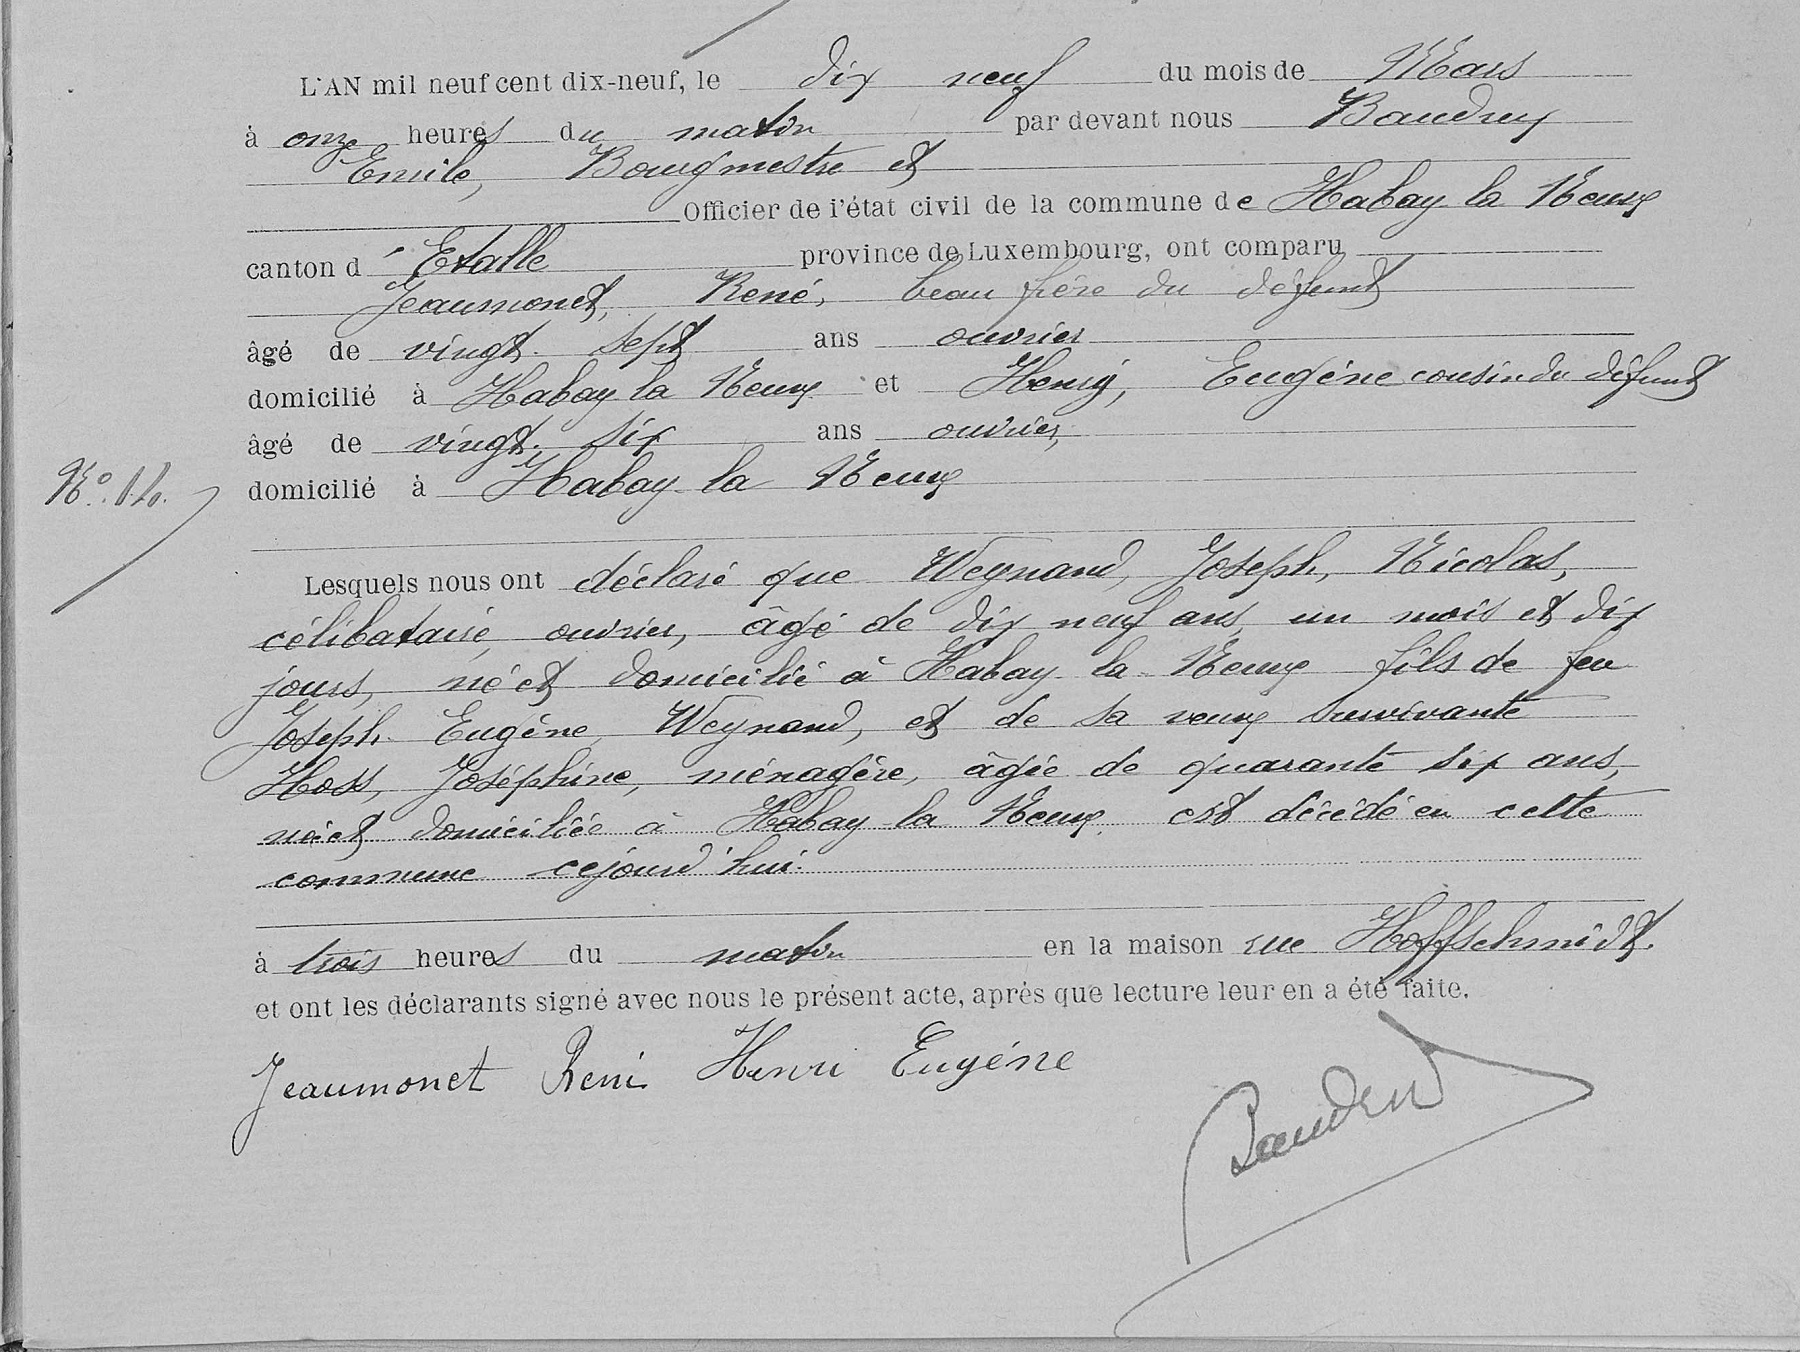 L'AN mil neuf cent dix-neuf, le dix neuf du mois de Mars
à onze heures du matin par devant nous Baudruy
Emile, Bourgmestre et
Officier de l'état civil de la commune de Habay la Neuve
canton d'Etalle province de Luxembourg, ont comparu
Jeaumonet, René, beau frère du défunt
âgé de vingt sept ans ouvrier
domicilié à Habay la Neuve et Henry, Eugène cousin du défunt
âgé de vingt six ans ouvrier,
domicilié à Habay la Neuve
No.
Lesquels nous ont déclaré que Weynand, Joseph, Nicolas,
célibataire, ouvrier, âgé de dix neuf ans, un mois et dix
jours, né et domicilié à Habay la Neuve fils de feu
Joseph Eugène, Weynand, et de sa veuve survivante
Hoss, Joséphine, ménagère, âgée de quarante six ans,
née et domiciliée à Habay la Neuve, est décédé en cette
commune cejourd'hui
à trois heures du matin en la maison rue Hoffschmidt.
et ont les déclarants signé avec nous le présent acte, après que lecture leur en a été faite.
Jeaumonet René Henri Eugéne